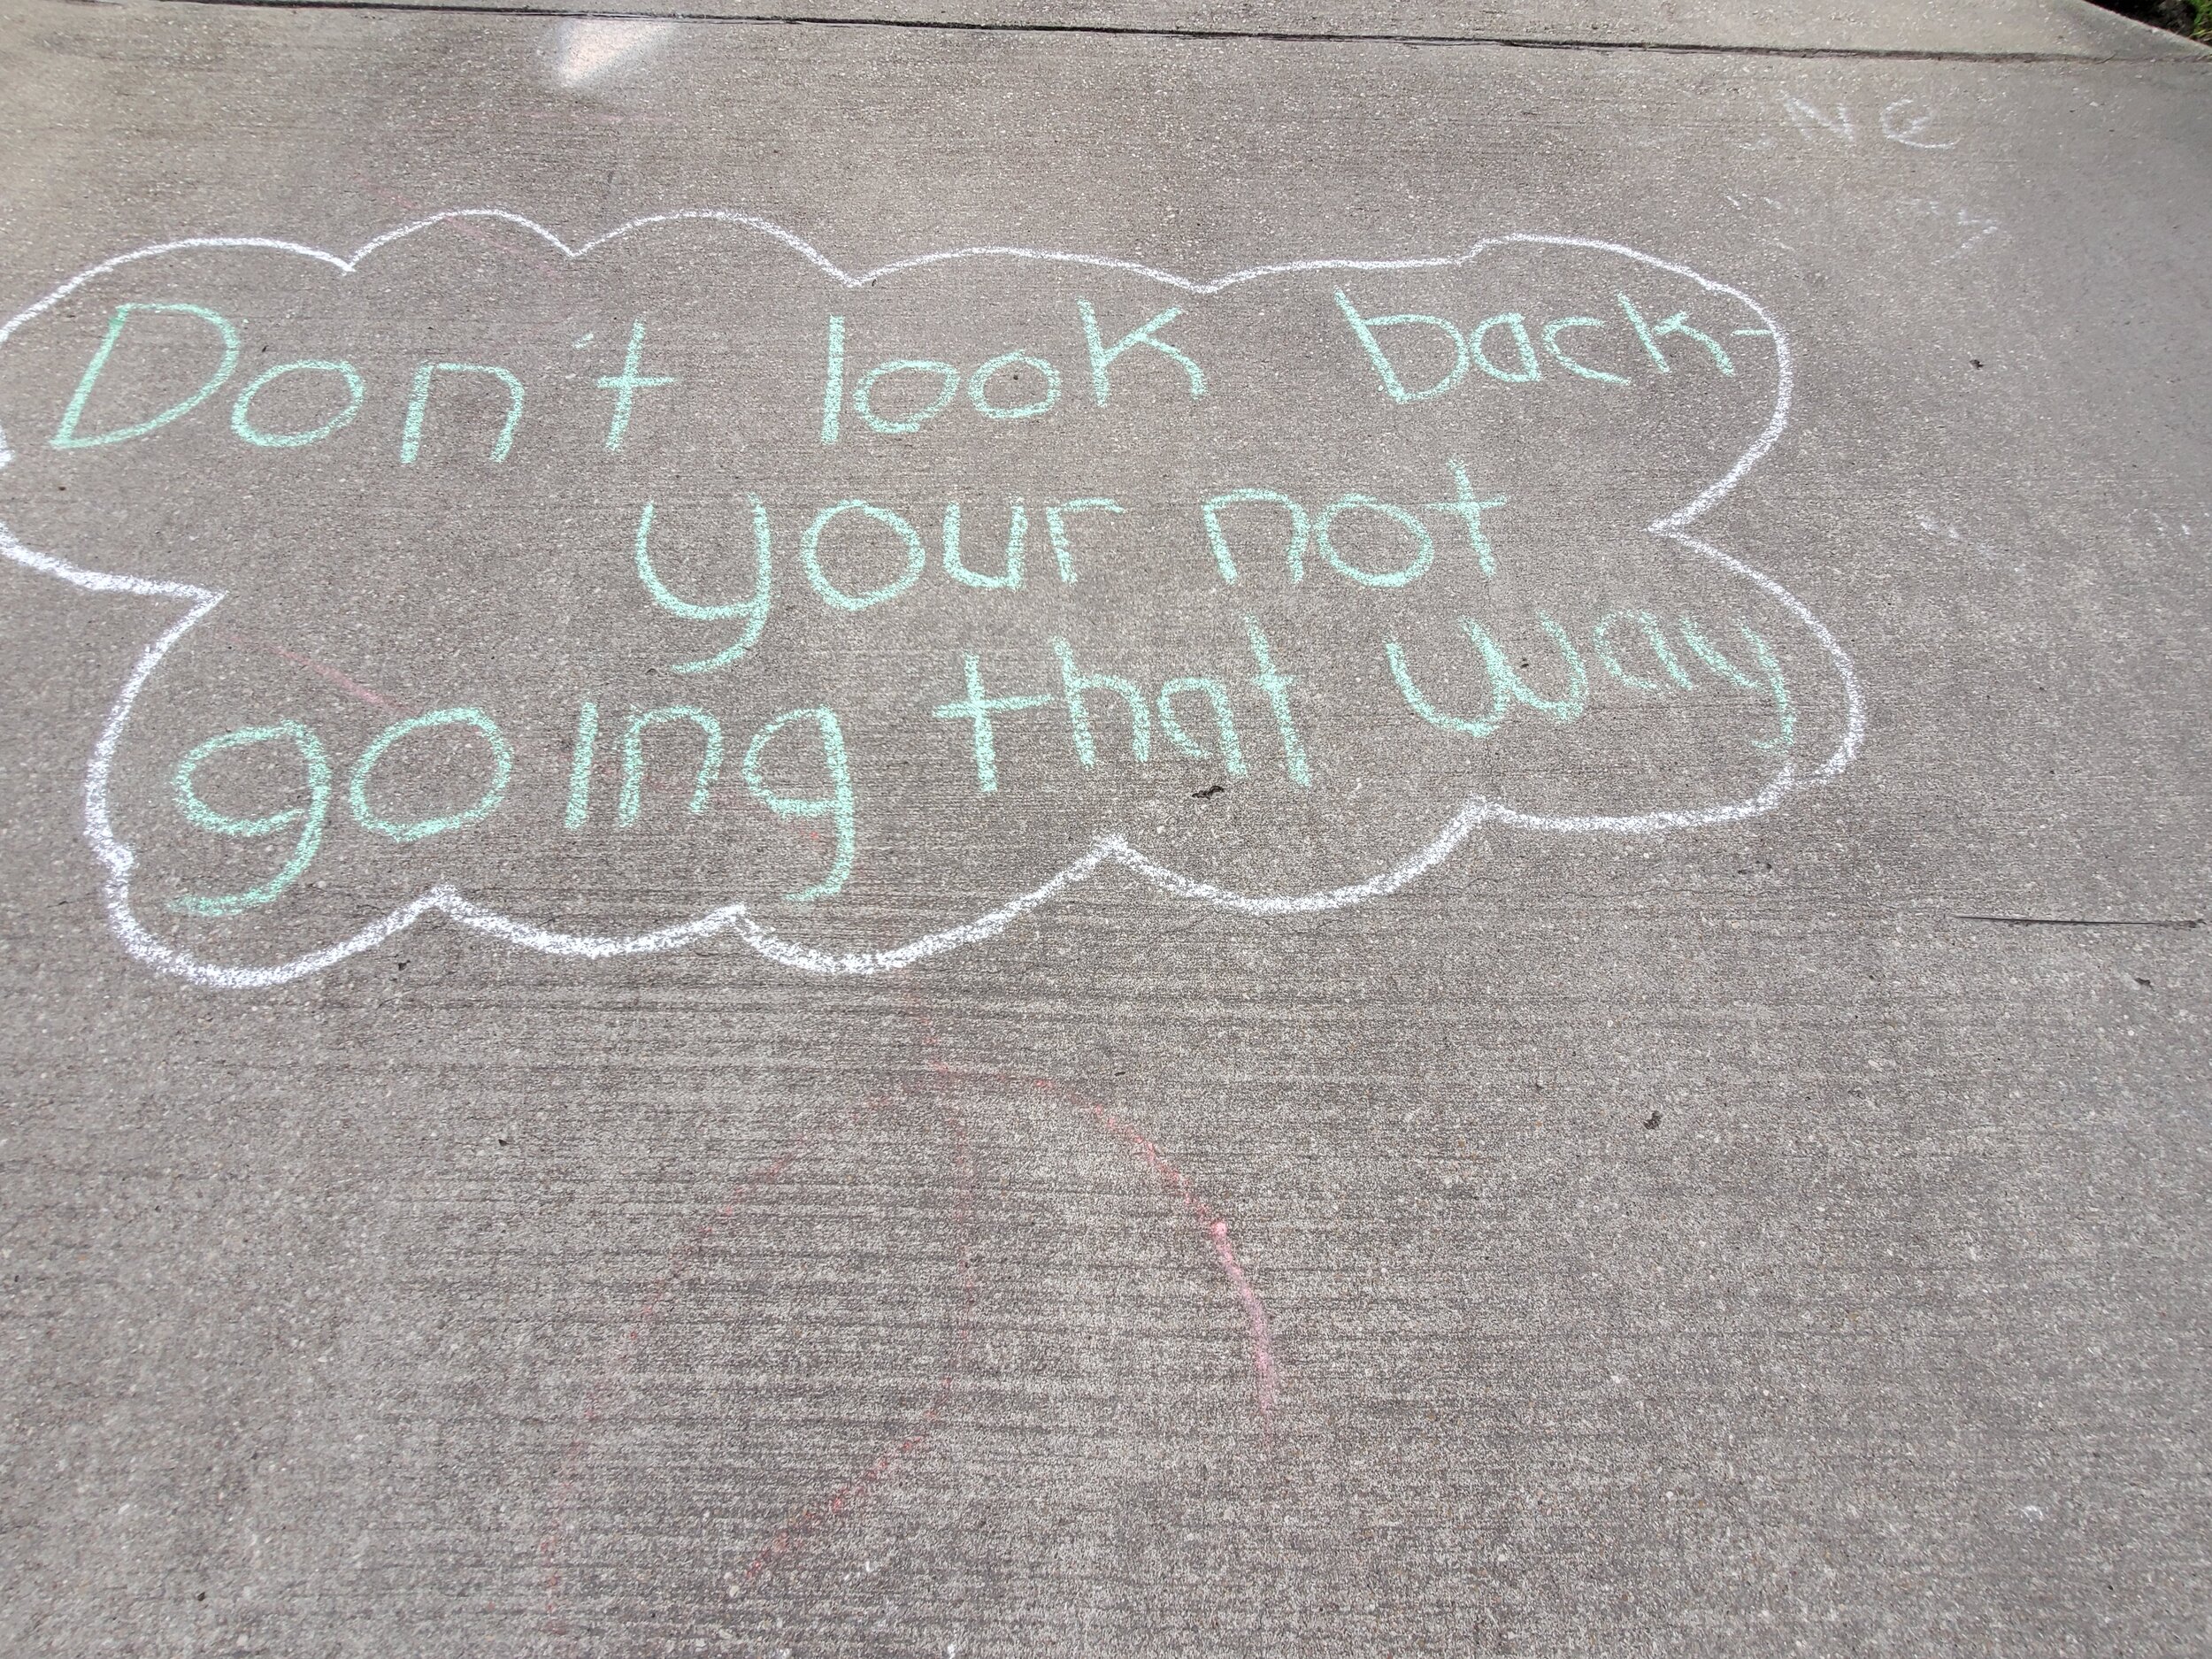 Don't look back-
your not
going that way